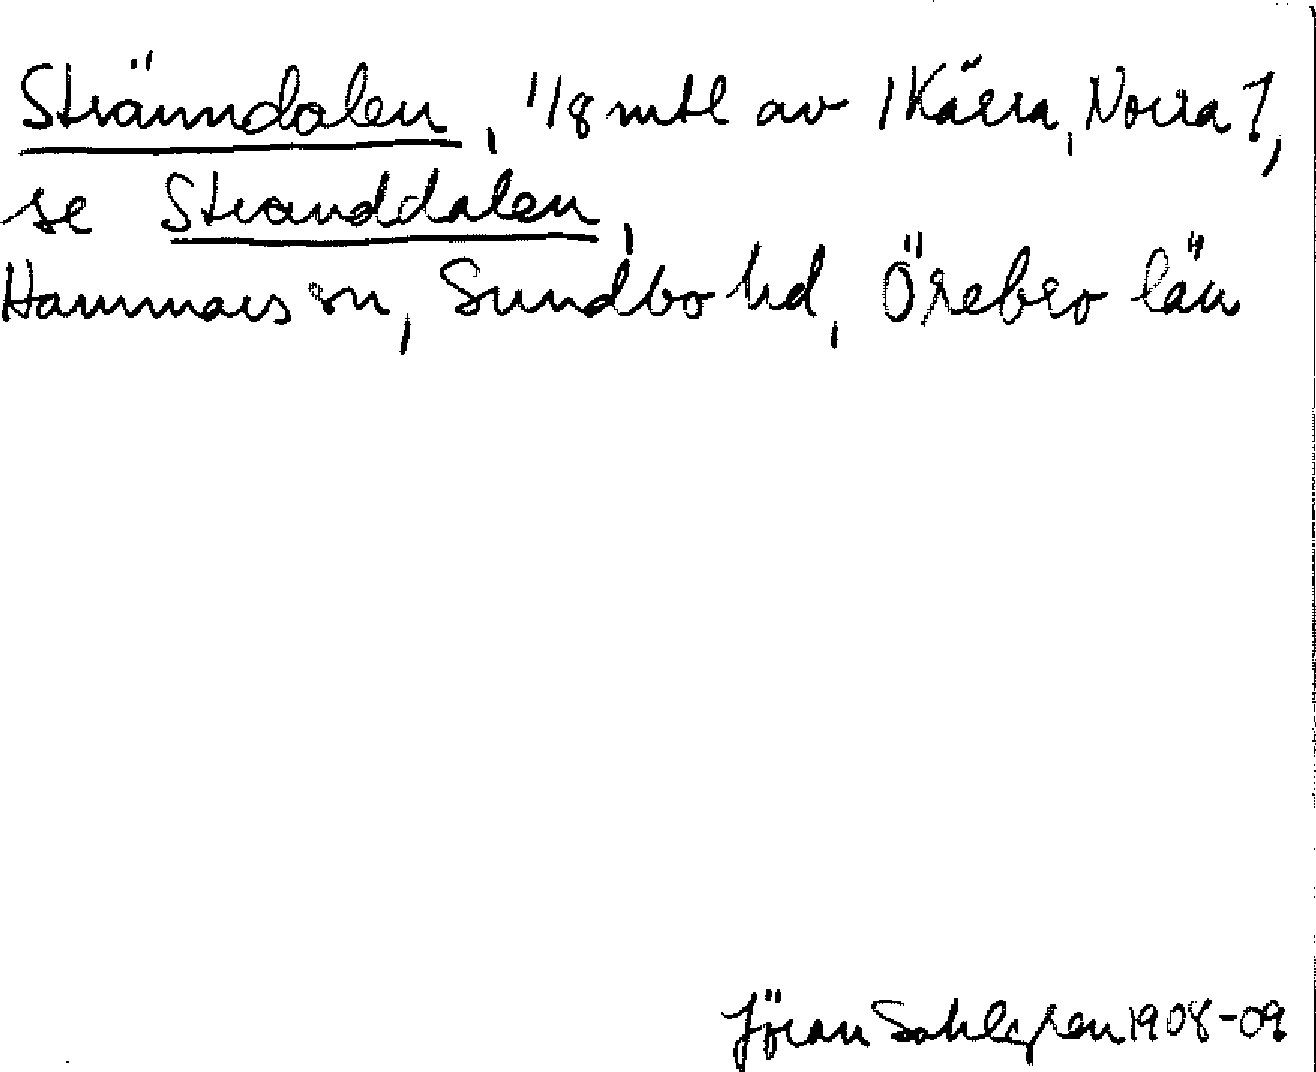 Stränndalen, 1/8 mtl av /Kärra, Norra/,
se Stranddalen,
Hammars sn, Sundbo hd, Örebro län
Jöran Sahlgren 1908-09